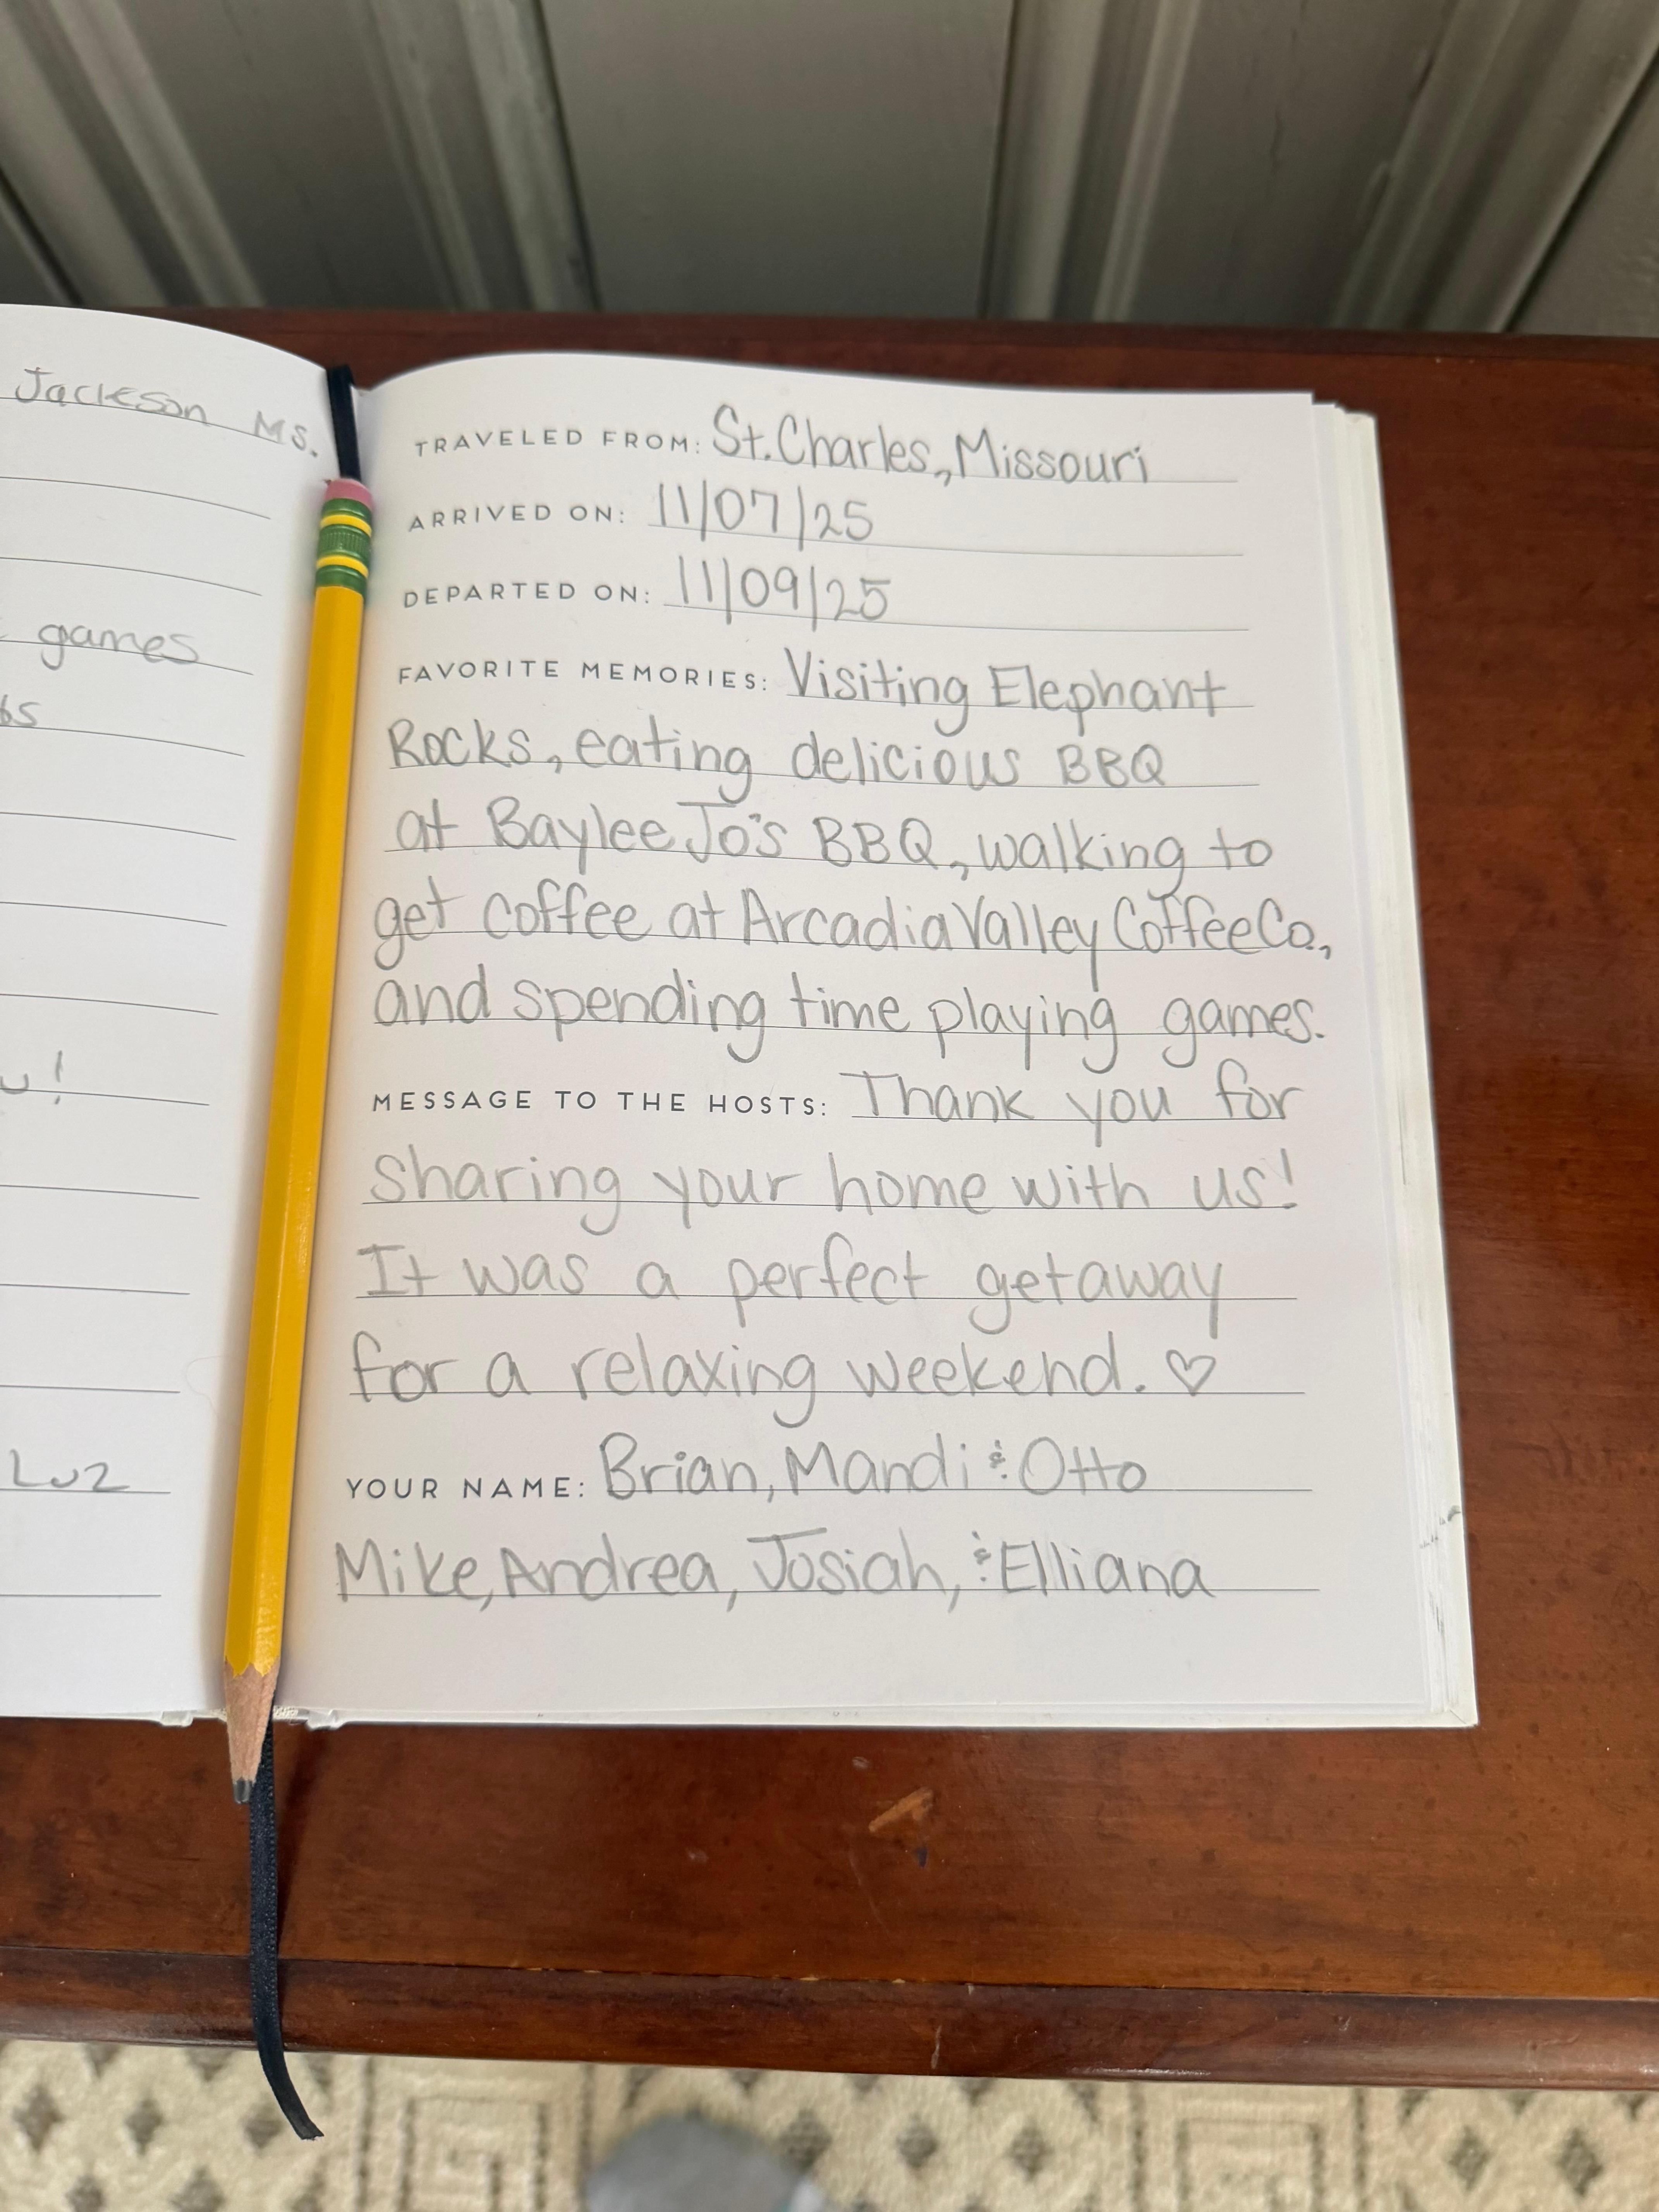 Jackson MS.
games
u!
TRAVELED FROM: St. Charles, Missouri
ARRIVED ON: 11/07/25
DEPARTED ON: 11/09/25
FAVORITE MEMORIES: Visiting Elephant
Rocks, eating delicious BBQ
at Baylee Jo's BBQ, walking to
get coffee at Arcadia Valley Coffee Co.,
and spending time playing games.
MESSAGE TO THE HOSTS: Thank you for
sharing your home with us!
It was a perfect getaway
for a relaxing weekend. ♡
YOUR NAME: Brian, Mandi & Otto
Mike, Andrea, Josiah, & Elliana